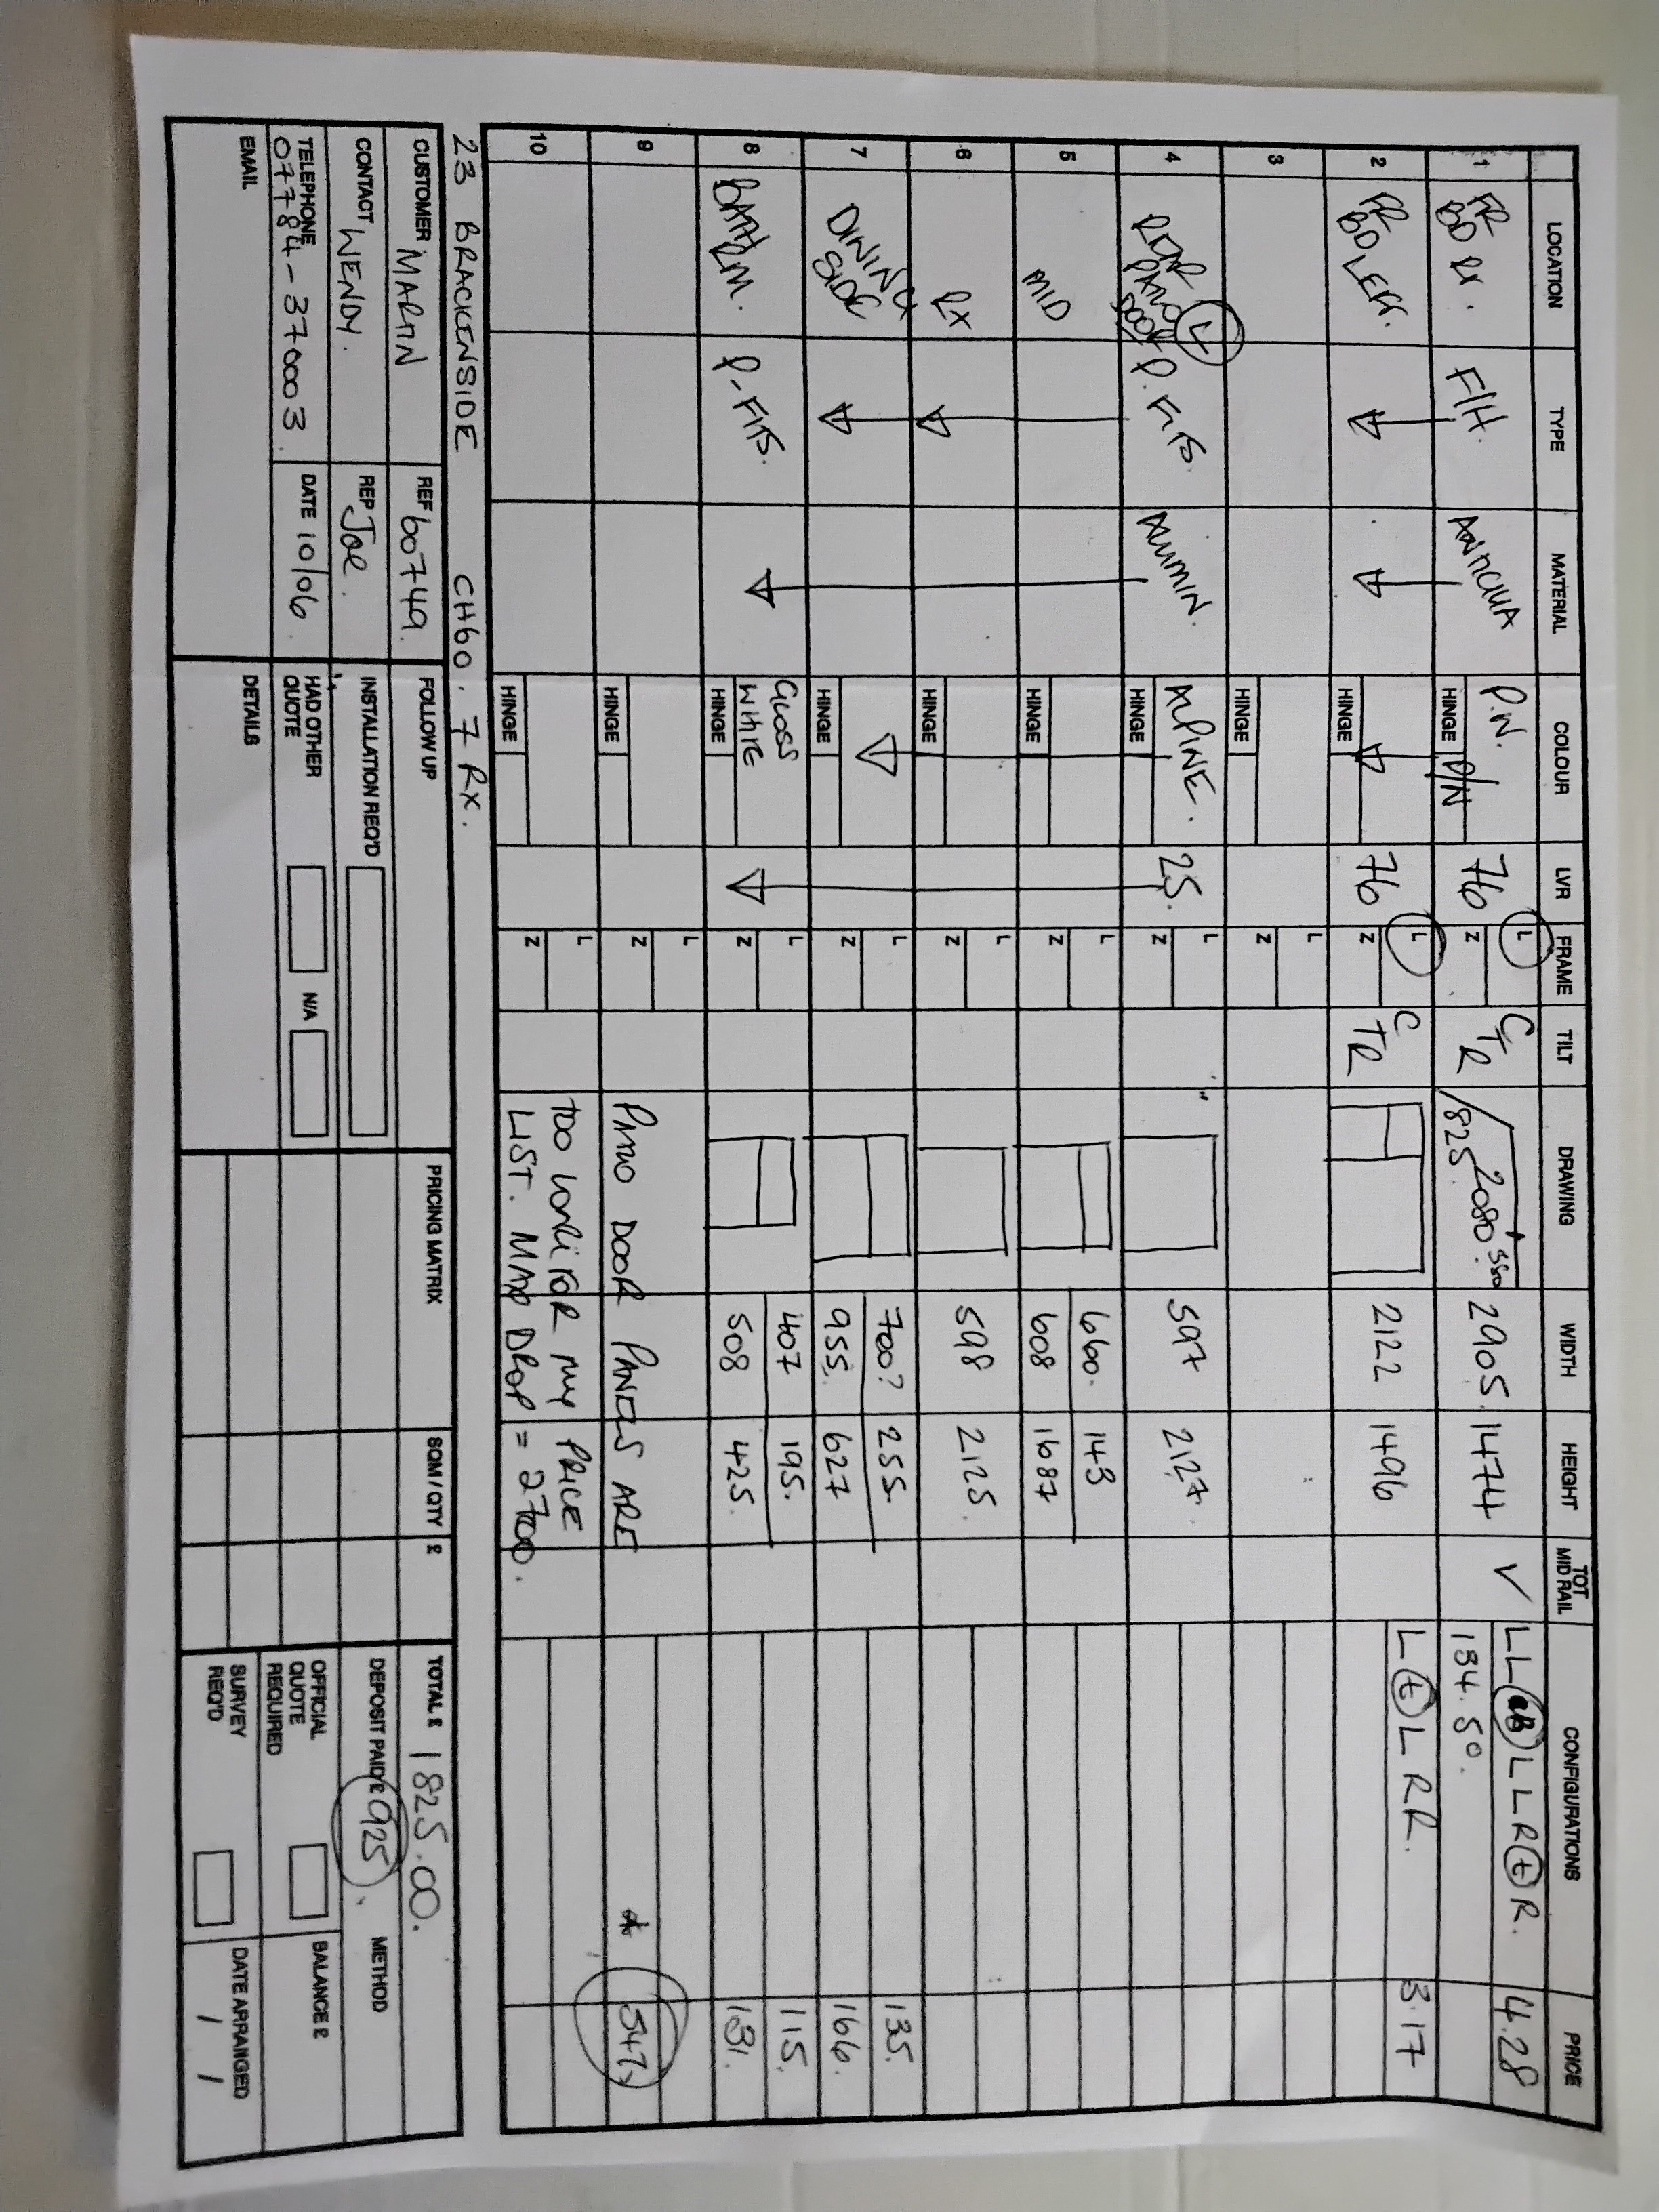 LOCATION TYPE MATERIAL COLOUR LVR FRAME TILT DRAWING WIDTH HEIGHT TOT MID RAIL CONFIGURATIONS PRICE
1 FR BD RX. F/H. ANTIGUA P.N. HINGE P/N 76 L Z CTR 825 2080 2905 1474 ✓ LL LLR t R. 4.28
134.50.
2 FR BD LEFT. HINGE 76 L Z CTR 2122 1496 L t L RR. 3.17
3 HINGE L Z
4 REAR PATIO DOOR L P. FITS. ALUMIN. ALPINE. HINGE 25. L Z 597 2127.
5 MID HINGE L Z 660. 143
608 1687
6 RX HINGE L Z 598 2125.
7 DINING SIDE HINGE L Z 700? 255. 135.
955. 627 166.
8 BATH RM. P-FITS. GLOSS WHITE HINGE L Z 407 195. 115.
508 425. 131.
9 HINGE L Z PATIO DOOR PANELS ARE 547
10 HINGE L Z TOO LONG FOR MY PRICE
LIST. MAX DROP = 2700.
23 BRACKENSIDE CH60. 7RX.
CUSTOMER MARTIN REF 60749. FOLLOW UP PRICING MATRIX SQM / QTY £ TOTAL £ 1825.00.
CONTACT WENDY. REP Joe. INSTALLATION REQ'D DEPOSIT PAID £ 925. METHOD
TELEPHONE 07784-370003. DATE 10/06 HAD OTHER QUOTE N/A OFFICIAL QUOTE REQUIRED BALANCE £
EMAIL DETAILS SURVEY REQ'D DATE ARRANGED / /